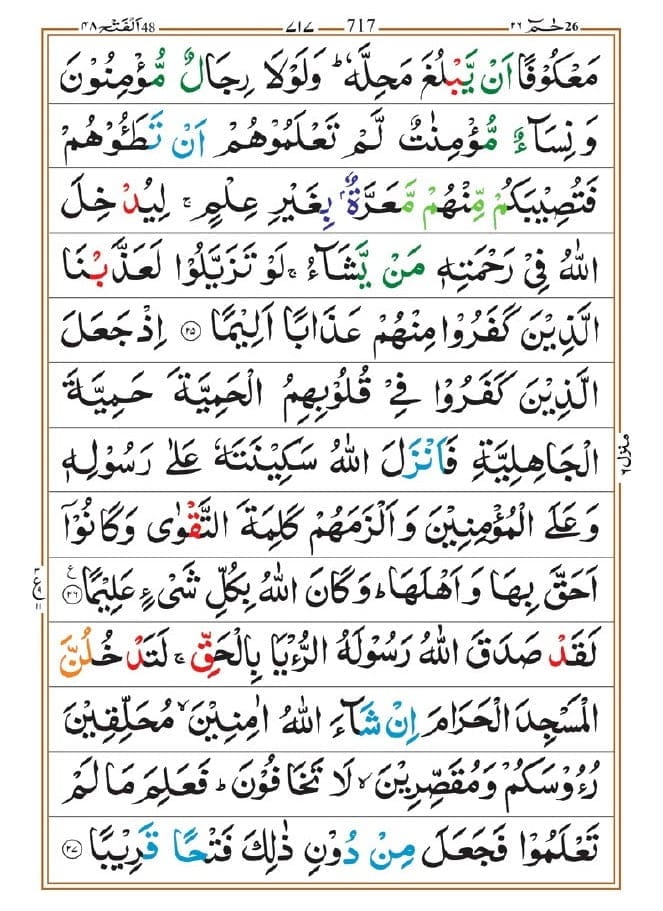 اَلْفَتْح ٤٨ 48 ٧١٧ 717 حٰمٓ ٢٦ 26
مَعْكُوْفًا اَنْ يَّبْلُغَ مَحِلَّهٗ ؕ وَلَوْلَا رِجَالٌ مُّؤْمِنُوْنَ
وَ نِسَآءٌ مُّؤْمِنٰتٌ لَّمْ تَعْلَمُوْهُمْ اَنْ تَطَـُٔوْهُمْ
فَتُصِيْبَكُمْ مِّنْهُمْ مَّعَرَّةٌۢ بِغَيْرِ عِلْمٍ ۚ لِيُدْخِلَ
اللّٰهُ فِيْ رَحْمَتِهٖ مَنْ يَّشَآءُ ۚ لَوْ تَزَيَّلُوْا لَعَذَّبْنَا
الَّذِيْنَ كَفَرُوْا مِنْهُمْ عَذَابًا اَلِيْمًا ۝٢٥ اِذْ جَعَلَ
الَّذِيْنَ كَفَرُوْا فِيْ قُلُوْبِهِمُ الْحَمِيَّةَ حَمِيَّةَ
الْجَاهِلِيَّةِ فَاَنْزَلَ اللّٰهُ سَكِيْنَتَهٗ عَلٰى رَسُوْلِهٖ
وَ عَلَى الْمُؤْمِنِيْنَ وَ اَلْزَمَهُمْ كَلِمَةَ التَّقْوٰى وَ كَانُوْۤا
اَحَقَّ بِهَا وَ اَهْلَهَا ؕ وَ كَانَ اللّٰهُ بِكُلِّ شَيْءٍ عَلِيْمًا ۝٢٦ ع
لَقَدْ صَدَقَ اللّٰهُ رَسُوْلَهُ الرُّءْيَا بِالْحَقِّ ۚ لَتَدْخُلُنَّ
الْمَسْجِدَ الْحَرَامَ اِنْ شَآءَ اللّٰهُ اٰمِنِيْنَ ۙ مُحَلِّقِيْنَ
رُءُوْسَكُمْ وَمُقَصِّرِيْنَ ۙ لَا تَخَافُوْنَ ؕ فَعَلِمَ مَا لَمْ
تَعْلَمُوْا فَجَعَلَ مِنْ دُوْنِ ذٰلِكَ فَتْحًا قَرِيْبًا ۝٢٧